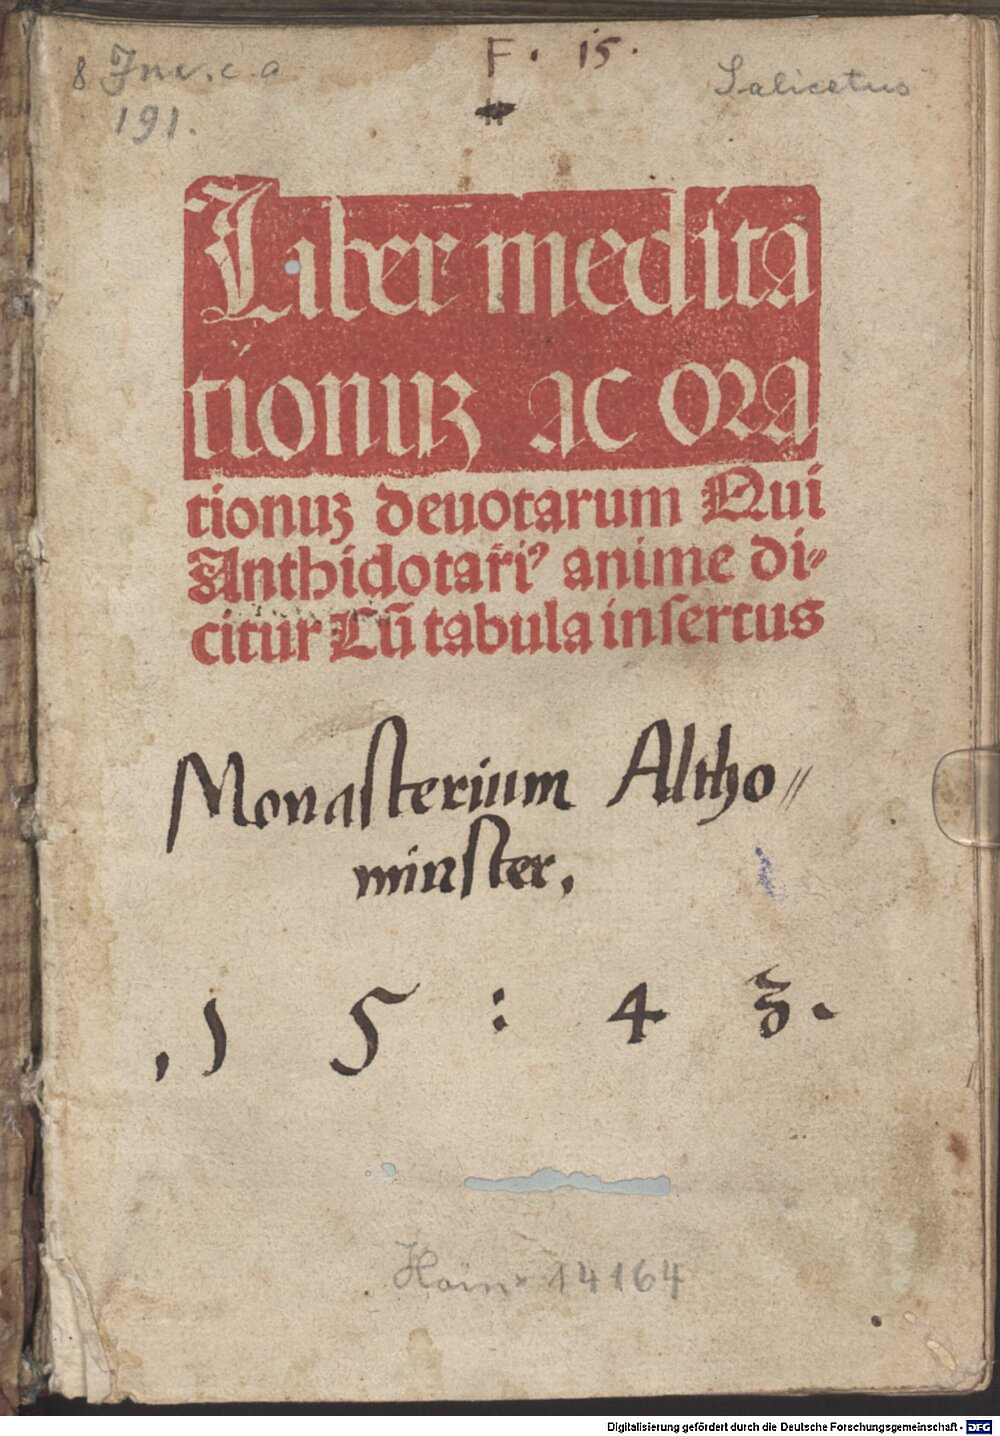 F. 15.
8 Inc. c. a
191.
Salicetus
Liber medita
tionuꝫ ac ora
tionuꝫ deuotarum Qui
Anthidotariꝰ anime di⸗
citur Cū tabula insertus
Monasterium Altho⸗
minster.
.15:43.
Hain× 14164
Digitalisierung gefördert durch die Deutsche Forschungsgemeinschaft - DFG